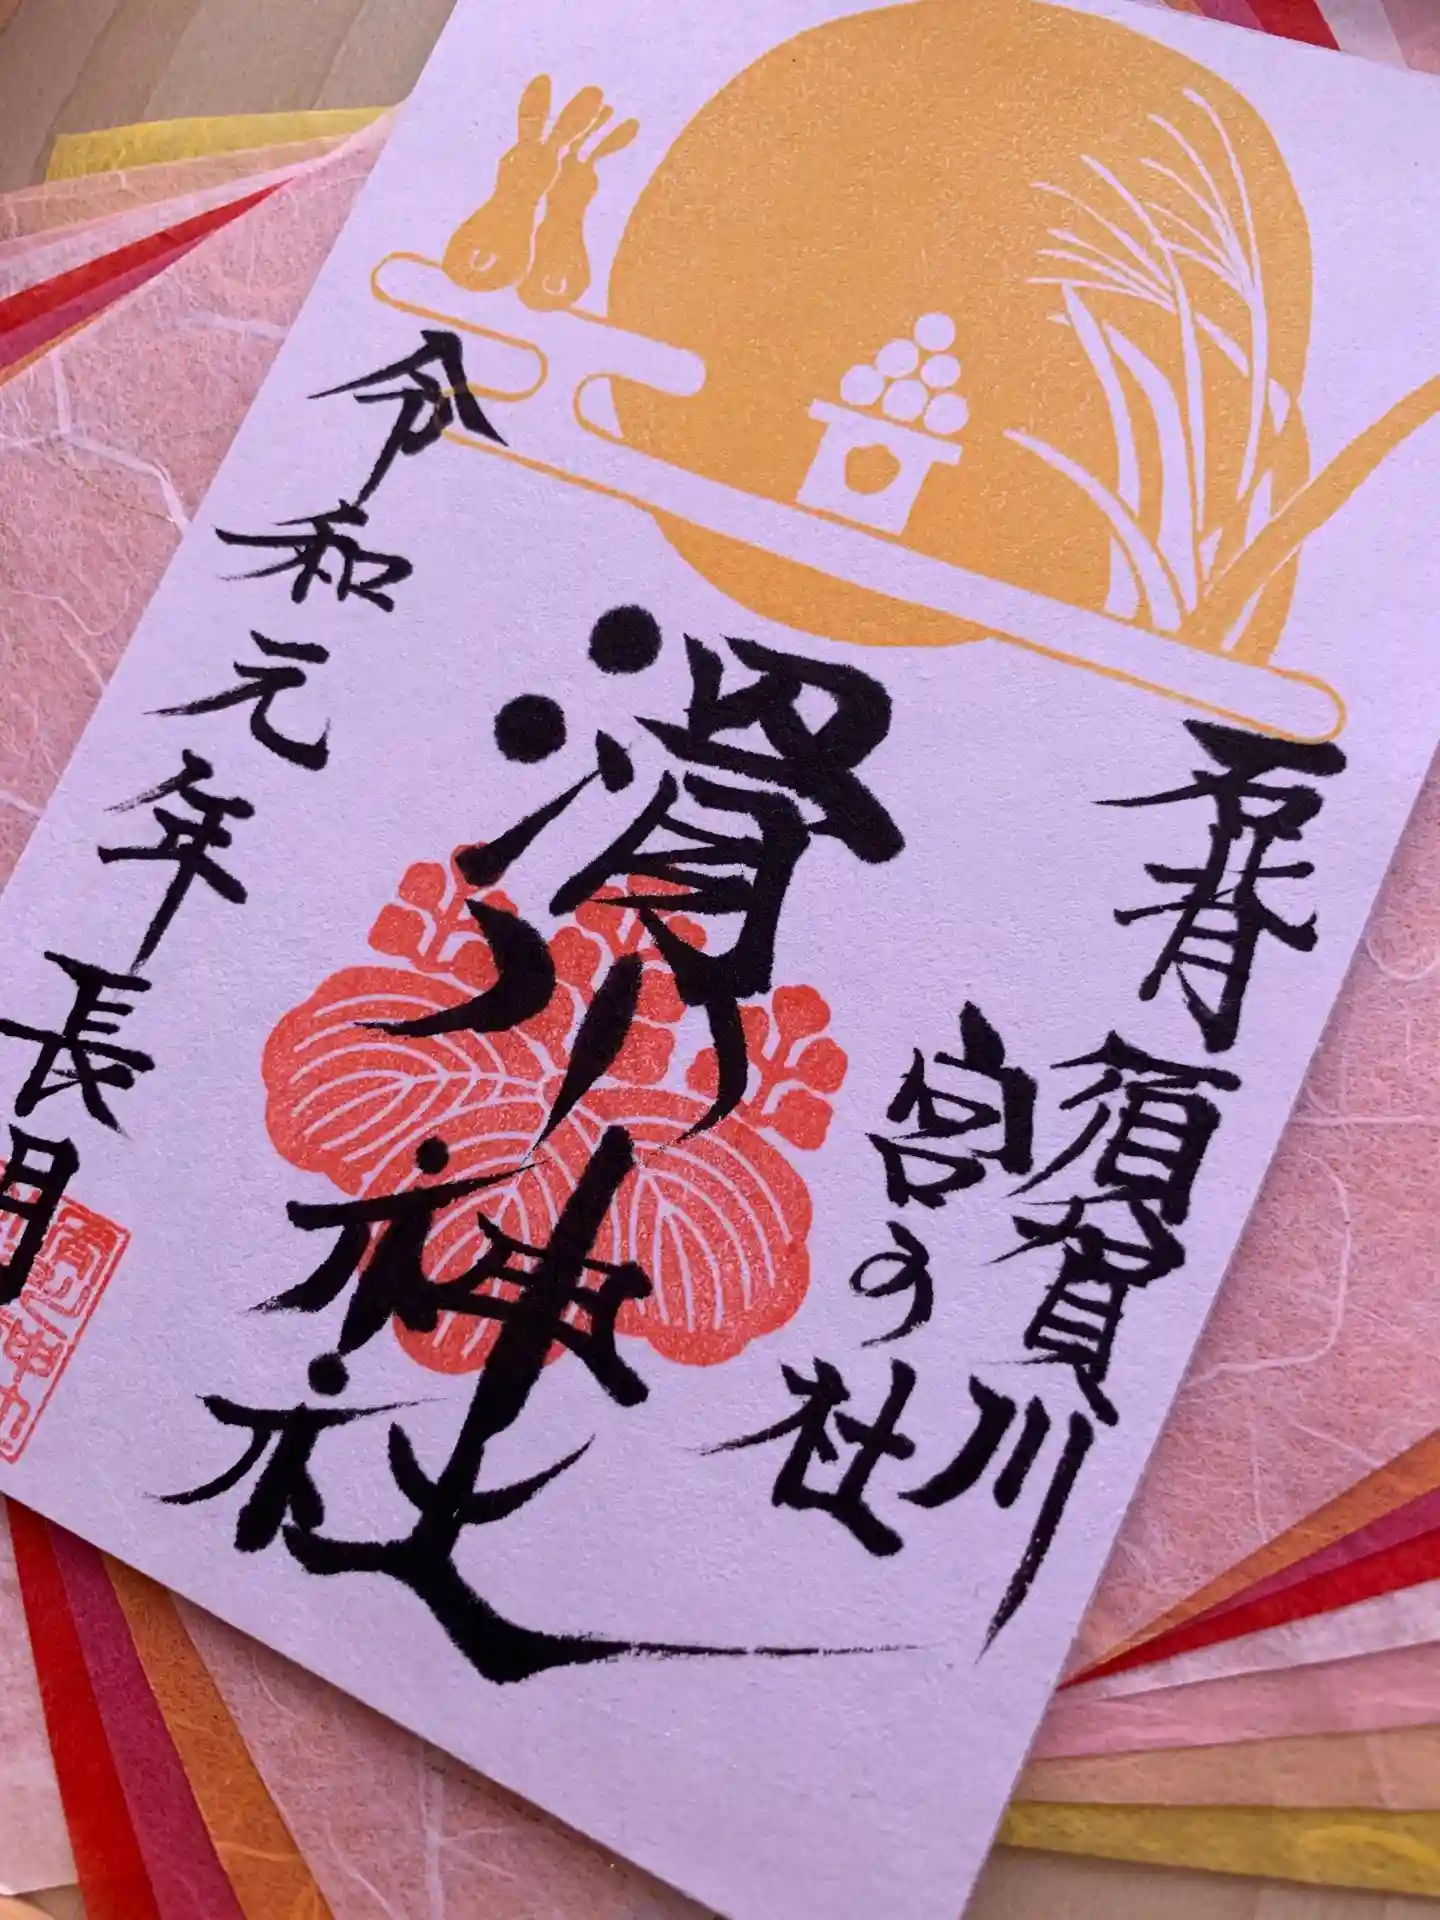 石背
須賀川
宮の杜
滑川神社
令和元年長月